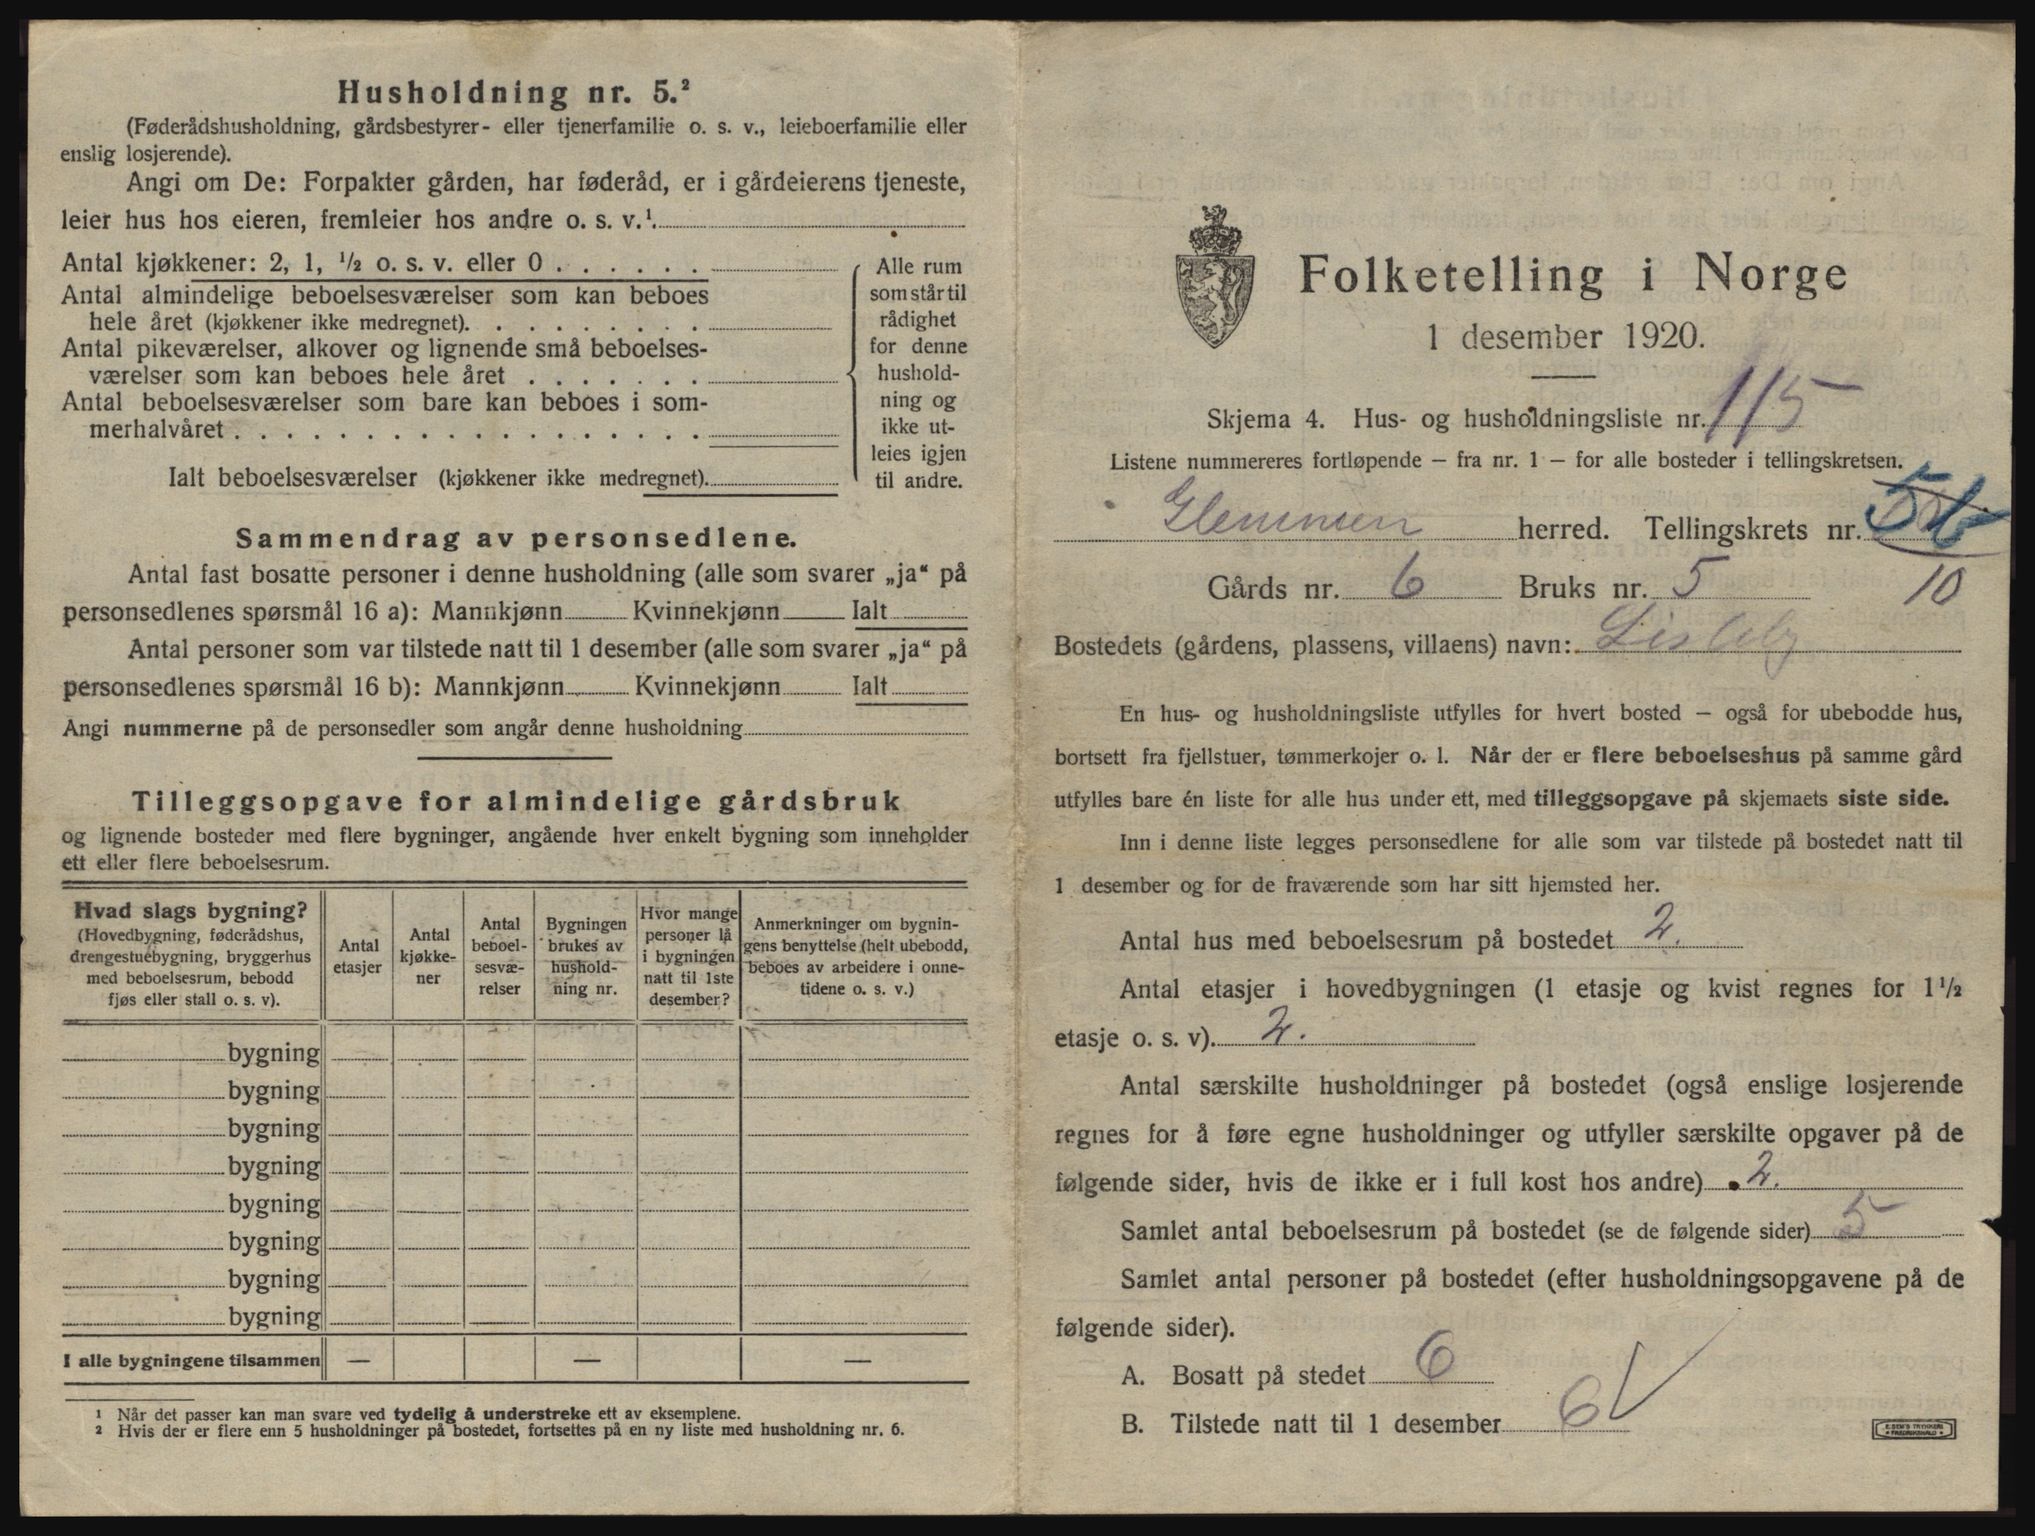 Husholdning nr. 5.²
(Føderådshusholdning, gårdsbestyrer- eller tjenerfamilie o. s. v., leieboerfamilie eller
enslig losjerende).
Angi om De: Forpakter gården, har føderåd, er i gårdeierens tjeneste,
leier hus hos eieren, fremleier hos andre o. s. v.¹.
Antal kjøkkener: 2, 1, ½ o. s. v. eller 0 . . . . . .
Antal almindelige beboelsesværelser som kan beboes
hele året (kjøkkener ikke medregnet). . . . . . . . .
Antal pikeværelser, alkover og lignende små beboelses-
værelser som kan beboes hele året . . . . . . .
Antal beboelsesværelser som bare kan beboes i som-
merhalvåret . . . . . . . . . . . . . . . . . .
Ialt beboelsesværelser (kjøkkener ikke medregnet).
Alle rum
som står til
rådighet
for denne
hushold-
ning og
ikke ut-
leies igjen
til andre.
Sammendrag av personsedlene.
Antal fast bosatte personer i denne husholdning (alle som svarer „ja“ på
personsedlenes spørsmål 16 a): Mannkjønn Kvinnekjønn Ialt
Antal personer som var tilstede natt til 1 desember (alle som svarer „ja“ på
personsedlenes spørsmål 16 b): Mannkjønn Kvinnekjønn Ialt
Angi nummerne på de personsedler som angår denne husholdning
Tilleggsopgave for almindelige gårdsbruk
og lignende bosteder med flere bygninger, angående hver enkelt bygning som inneholder
ett eller flere beboelsesrum.
Hvad slags bygning?
(Hovedbygning, føderådshus,
drengestuebygning, bryggerhus
med beboelsesrum, bebodd
fjøs eller stall o. s. v).
Antal
etasjer
Antal
kjøkke-
ner
Antal
beboel-
sesvæ-
relser
Bygningen
brukes av
hushold-
ning nr.
Hvor mange
personer lå
i bygningen
natt til 1ste
desember?
Anmerkninger om bygnin-
gens benyttelse (helt ubebodd,
beboes av arbeidere i onne-
tidene o. s. v.)
bygning
bygning
bygning
bygning
bygning
bygning
bygning
bygning
I alle bygningene tilsammen — — —
¹ Når det passer kan man svare ved tydelig å understreke ett av eksemplene.
² Hvis der er flere enn 5 husholdninger på bostedet, fortsettes på en ny liste med husholdning nr. 6.
Folketelling i Norge
1 desember 1920.
Skjema 4. Hus- og husholdningsliste nr. 115
Listene nummereres fortløpende – fra nr. 1 – for alle bosteder i tellingskretsen.
Glemmen herred. Tellingskrets nr.
10
Gårds nr. 6 Bruks nr. 5
Bostedets (gårdens, plassens, villaens) navn: Lisleby
En hus- og husholdningsliste utfylles for hvert bosted – også for ubebodde hus,
bortsett fra fjellstuer, tømmerkojer o. l. Når der er flere beboelseshus på samme gård
utfylles bare én liste for alle hus under ett, med tilleggsopgave på skjemaets siste side.
Inn i denne liste legges personsedlene for alle som var tilstede på bostedet natt til
1 desember og for de fraværende som har sitt hjemsted her.
Antal hus med beboelsesrum på bostedet 2.
Antal etasjer i hovedbygningen (1 etasje og kvist regnes for 1½
etasje o. s. v). 2.
Antal særskilte husholdninger på bostedet (også enslige losjerende
regnes for å føre egne husholdninger og utfyller særskilte opgaver på de
følgende sider, hvis de ikke er i full kost hos andre) 2.
Samlet antal beboelsesrum på bostedet (se de følgende sider) 5
Samlet antal personer på bostedet (efter husholdningsopgavene på de
følgende sider).
A. Bosatt på stedet 6
B. Tilstede natt til 1 desember 6